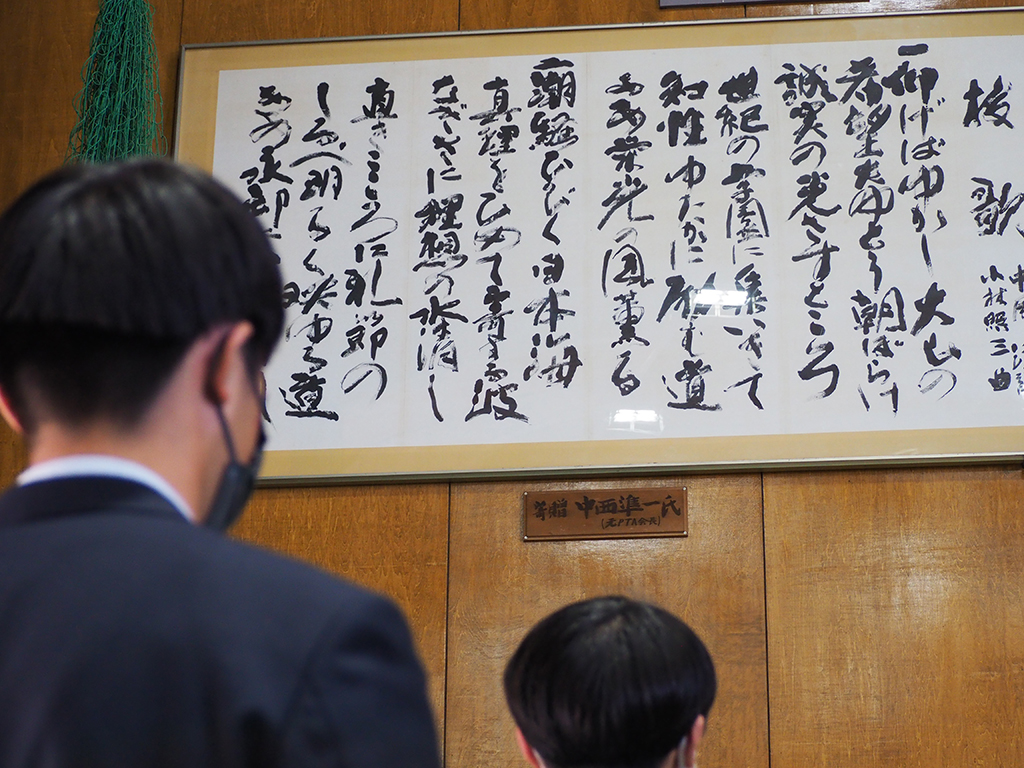 校歌
小林照三曲
一仰げばゆかし大山の
希望もゆとう朝ぼらけ
誠実の光さすところ
世紀の学園に集いきて
知性ゆたかに励む道
ああ栄光の園薫る
二潮騒ひびく日本海
真理をひめて寄する波
なぎさに理想の水清し
直きこころに礼節の
しるべ明るく映ゆる道
寄贈 中西準一氏
(元PTA会長)